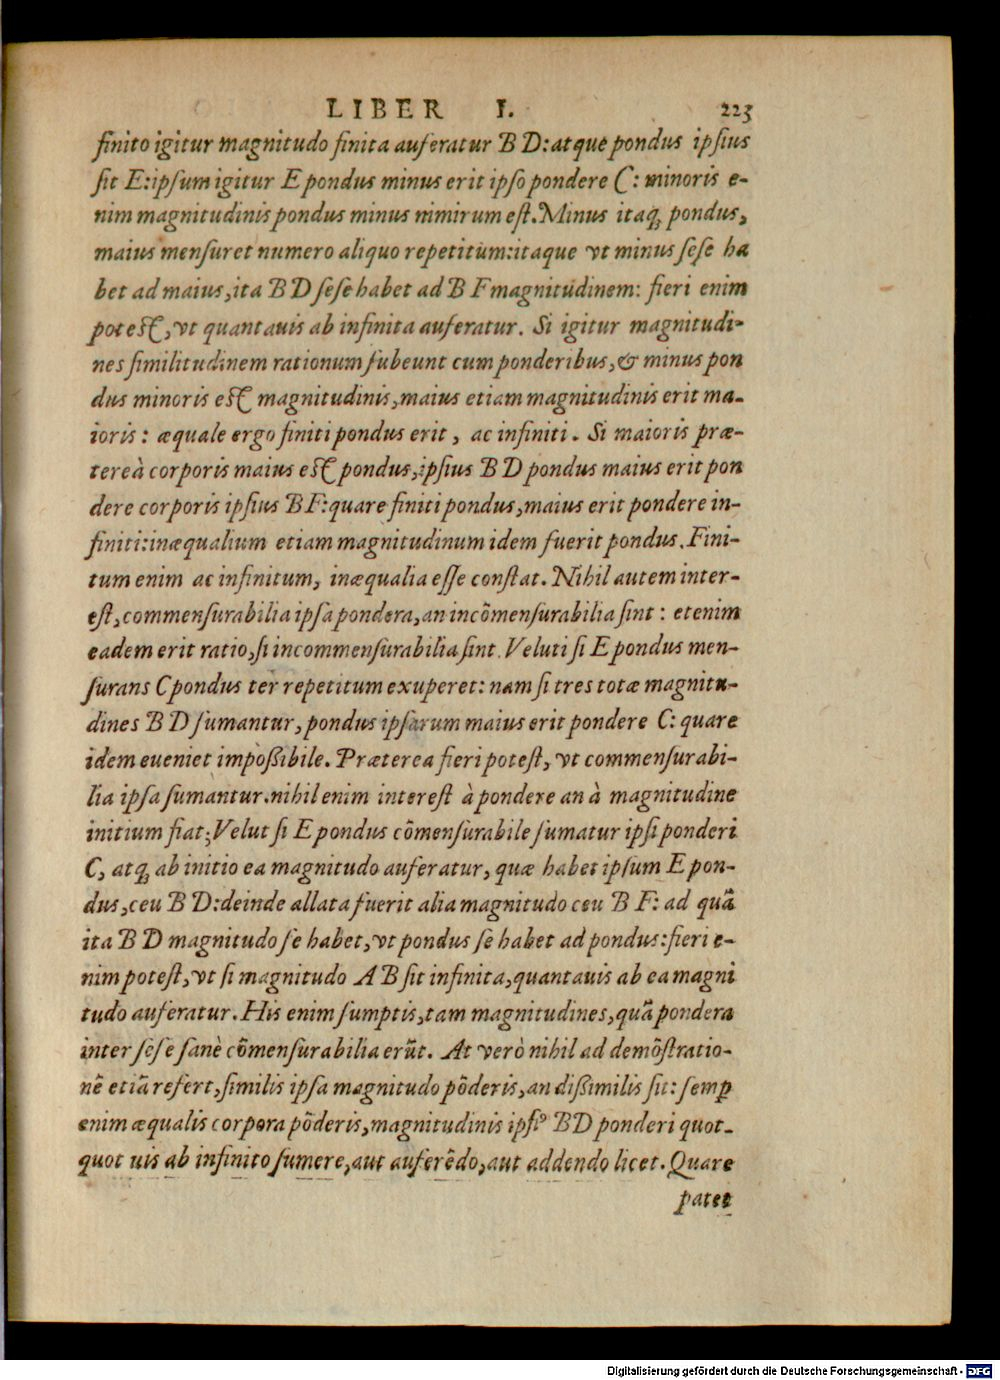 LIBER I. 223
finito igitur magnitudo finita auferatur B D: atque pondus ipſius
ſit E: ipſum igitur E pondus minus erit ipſo pondere C: minoris e-
nim magnitudinis pondus minus nimirum eſt. Minus itaq; pondus,
maius menſuret numero aliquo repetitum: itaque vt minus ſeſe ha
bet ad maius, ita B D ſeſe habet ad B F magnitudinem: fieri enim
poteſt, vt quantauis ab infinita auferatur. Si igitur magnitudi-
nes ſimilitudinem rationum ſubeunt cum ponderibus, & minus pon
dus minoris eſt magnitudinis, maius etiam magnitudinis erit ma-
ioris: æquale ergo finiti pondus erit, ac infiniti. Si maioris præ-
tereà corporis maius eſt pondus, ipſius B D pondus maius erit pon
dere corporis ipſius B F: quare finiti pondus, maius erit pondere in-
finiti: inæqualium etiam magnitudinum idem fuerit pondus. Fini-
tum enim ac infinitum, inæqualia eſſe conſtat. Nihil autem inter-
eſt, commenſurabilia ipſa pondera, an incõmenſurabilia ſint: etenim
eadem erit ratio, ſi incommenſurabilia ſint. Veluti ſi E pondus men-
ſurans C pondus ter repetitum exuperet: nam ſi tres totæ magnitu-
dines B D ſumantur, pondus ipſarum maius erit pondere C: quare
idem eueniet impoßibile. Præterea fieri poteſt, vt commenſurabi-
lia ipſa ſumantur. nihil enim intereſt à pondere an à magnitudine
initium fiat; Velut ſi E pondus cõmenſurabile ſumatur ipſi ponderi
C, atq; ab initio ea magnitudo auferatur, quæ habet ipſum E pon-
dus, ceu B D: deinde allata fuerit alia magnitudo ceu B F: ad quã
ita B D magnitudo ſe habet, vt pondus ſe habet ad pondus: fieri e-
nim poteſt, vt ſi magnitudo A B ſit infinita, quantauis ab ea magni
tudo auferatur. His enim ſumptis, tam magnitudines, quã pondera
inter ſeſe ſanè cõmenſurabilia erũt. At verò nihil ad demõſtratio-
nẽ etiã refert, ſimilis ipſa magnitudo põderis, an dißimilis ſit: ſemꝑ
enim æqualis corpora põderis, magnitudinis ipſiꝰ B D ponderi quot-
quot uis ab infinito ſumere, aut auferẽdo, aut addendo licet. Quare
patet
Digitalisierung gefördert durch die Deutsche Forschungsgemeinschaft - DFG